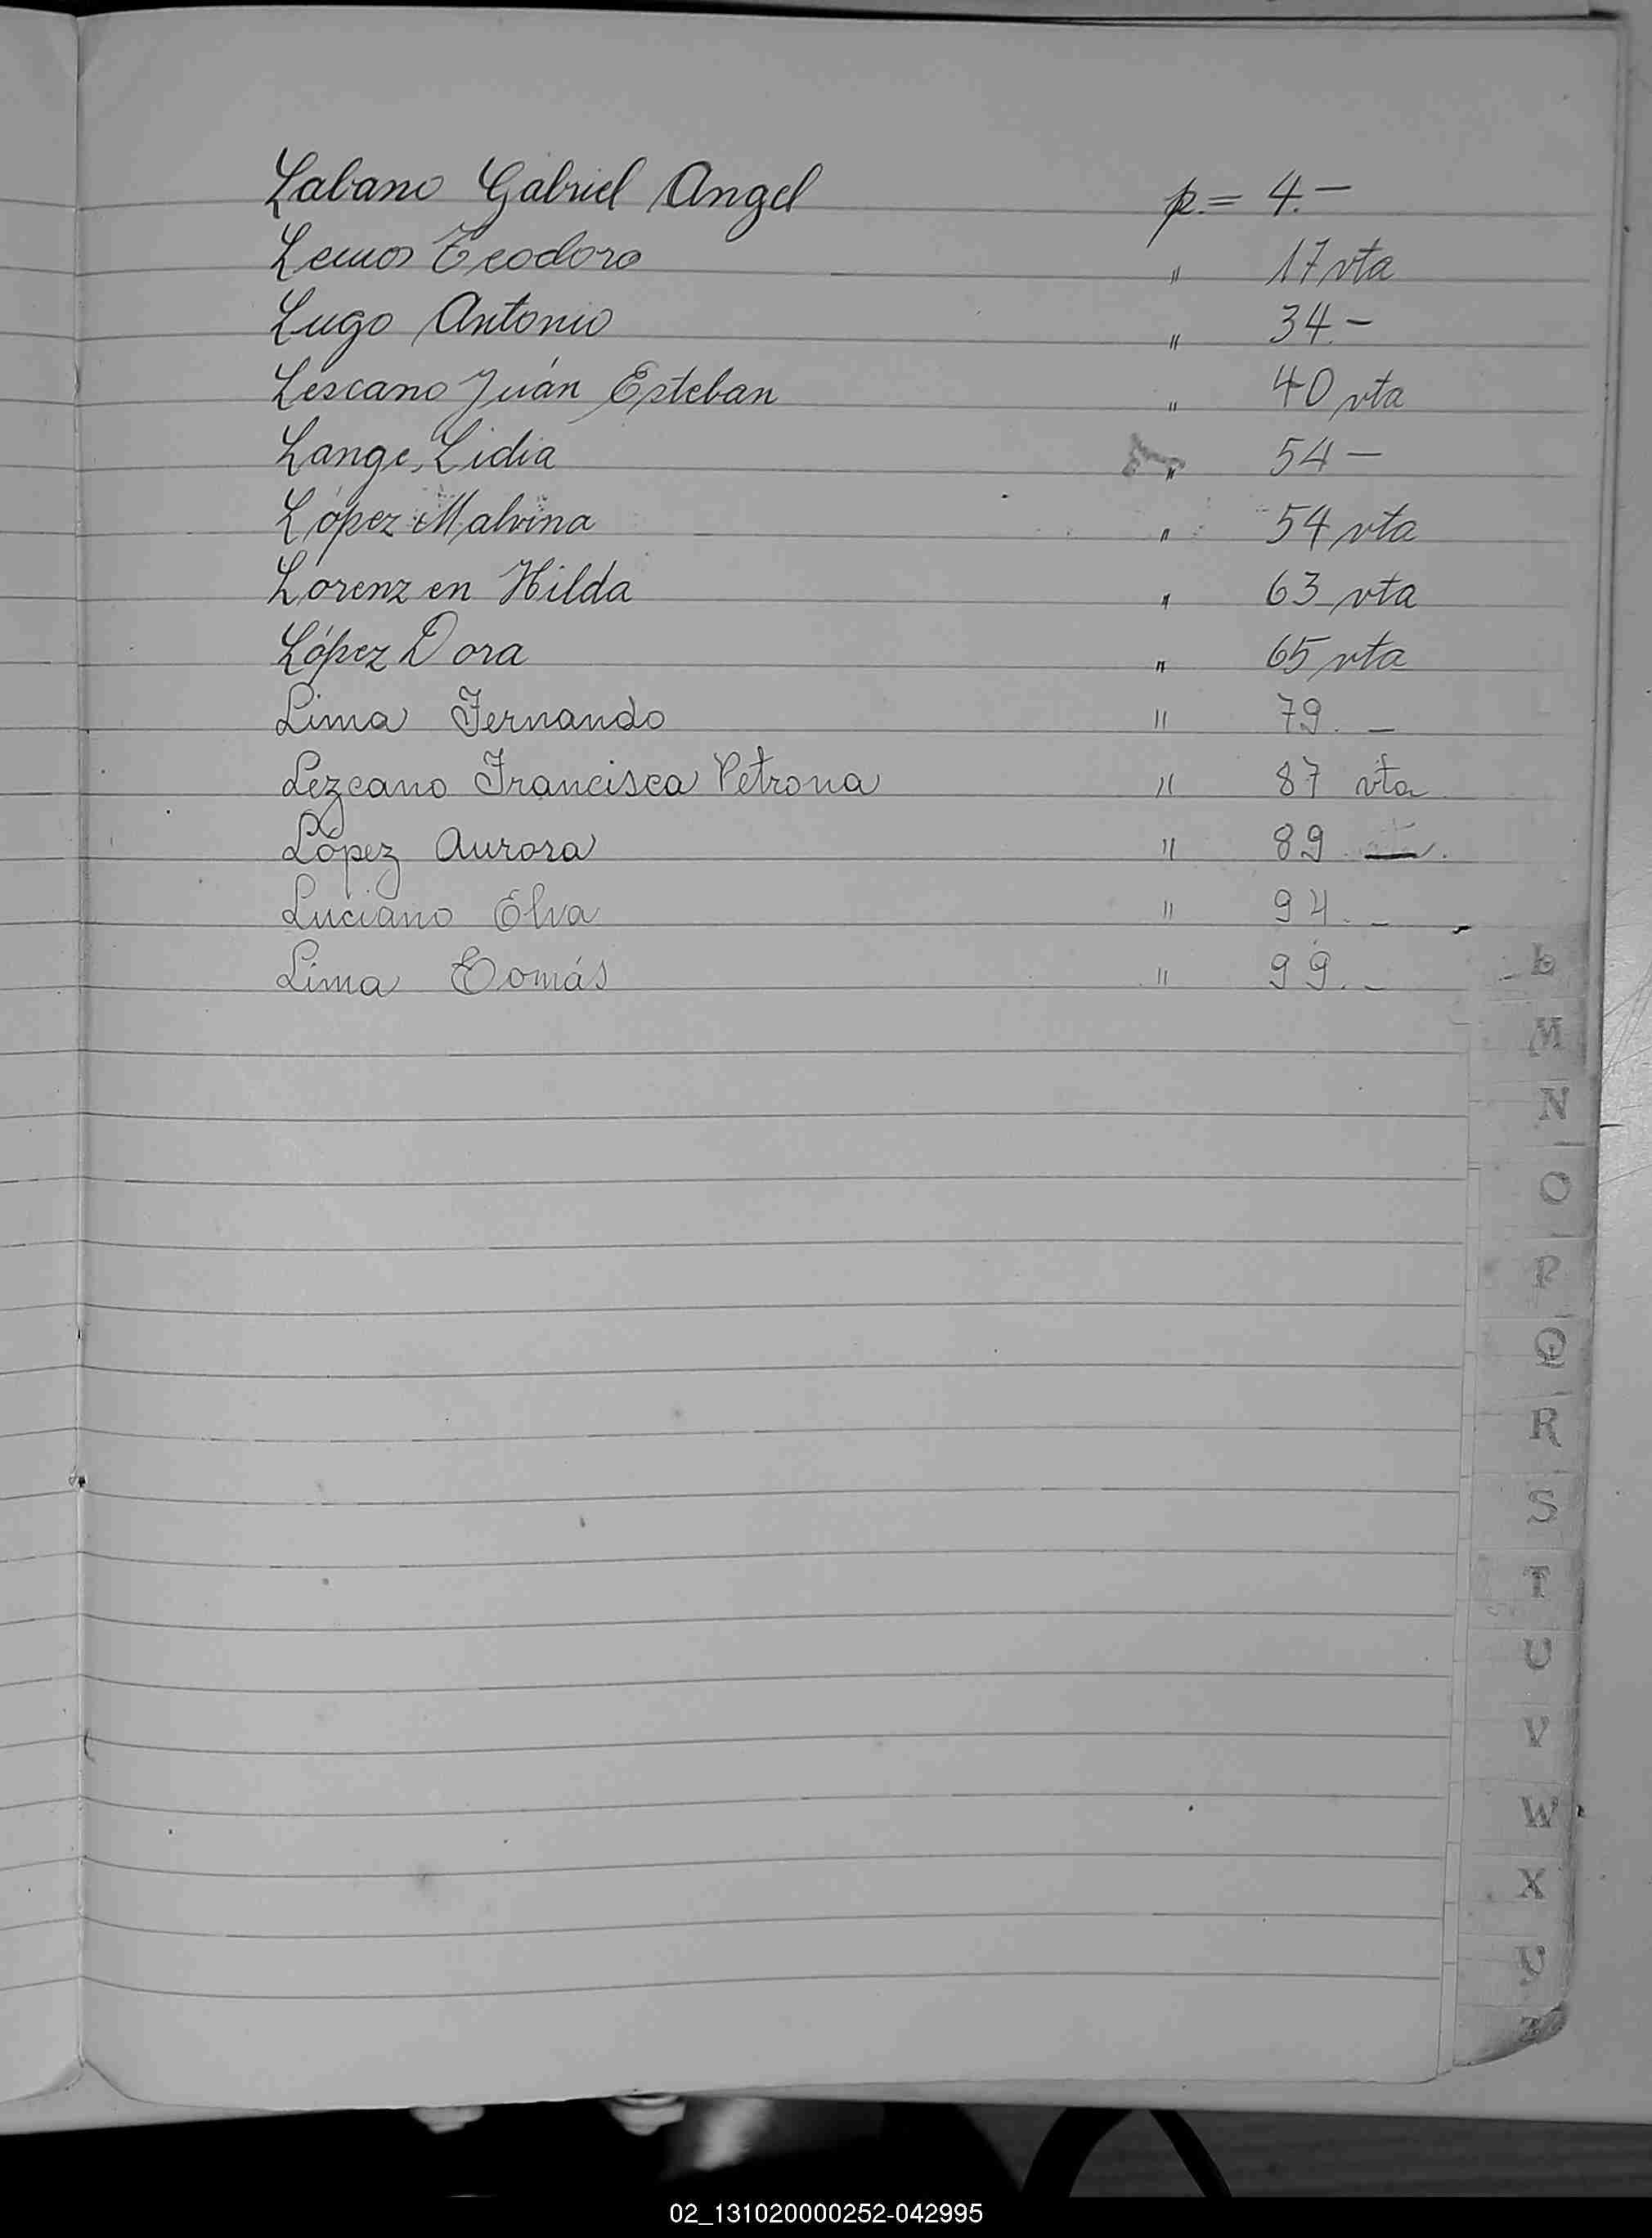 Labano Gabriel Angel p.= 4.—
Lemos Teodoro " 17 vta
Lugo Antonio " 34.—
Lescano Juán Esteban " 40 vta
Lange, Lidia " 54 —
López Malvina " 54 vta
Lorenzen Hilda " 63 vta
López Dora " 65 vta
Lima Fernando " 79. —
Lezcano Francisca Petrona " 87 vta
López Aurora " 89 —.
Luciano Elva " 94. —
Lima Tomás " 99. —
L
M
N
O
P
Q
R
S
T
U
V
W
X
Y
Z
02_131020000252-042995